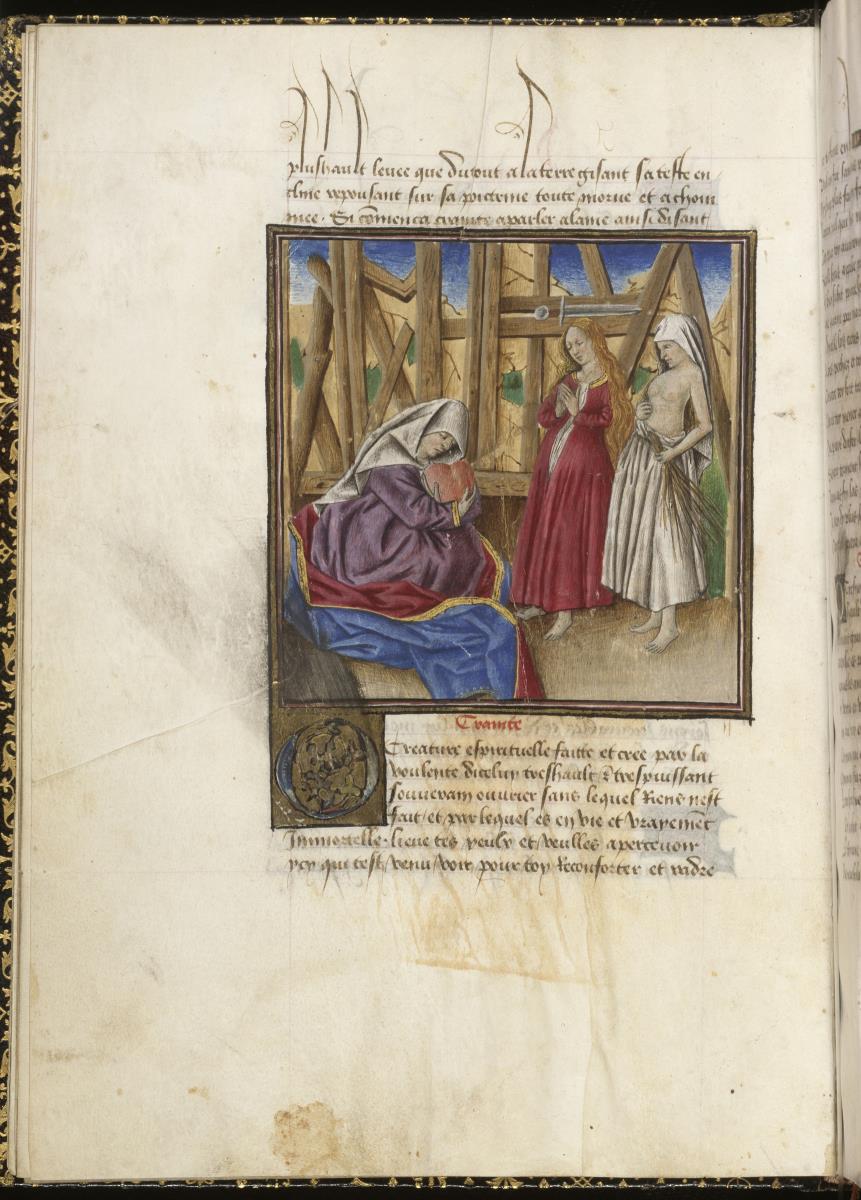 plushault levee que du tout a la terre gisant sa teste en
cline reposant sur sa poictrine toute morne et achom
mee. Si cōmenca crainte a parler a lame ainsi disant
Crainte
Creature espirituelle faitte et cree par la
voulente dicelui treshault & trespuissant
souverain ouvrier sans lequel Riens nest
fait et par lequel es en vie et vrayemēt
Immortelle. lieve tes yeulx et veulles apercevoir
ycy qui test venu voir pour toy Reconforter et